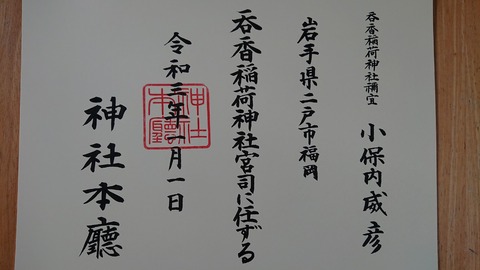 呑香稲荷神社禰宜 小保内威彦
岩手県二戸市福岡
呑香稲荷神社宮司に任ずる
令和三年一月一日
神社本廳
神社本廳印